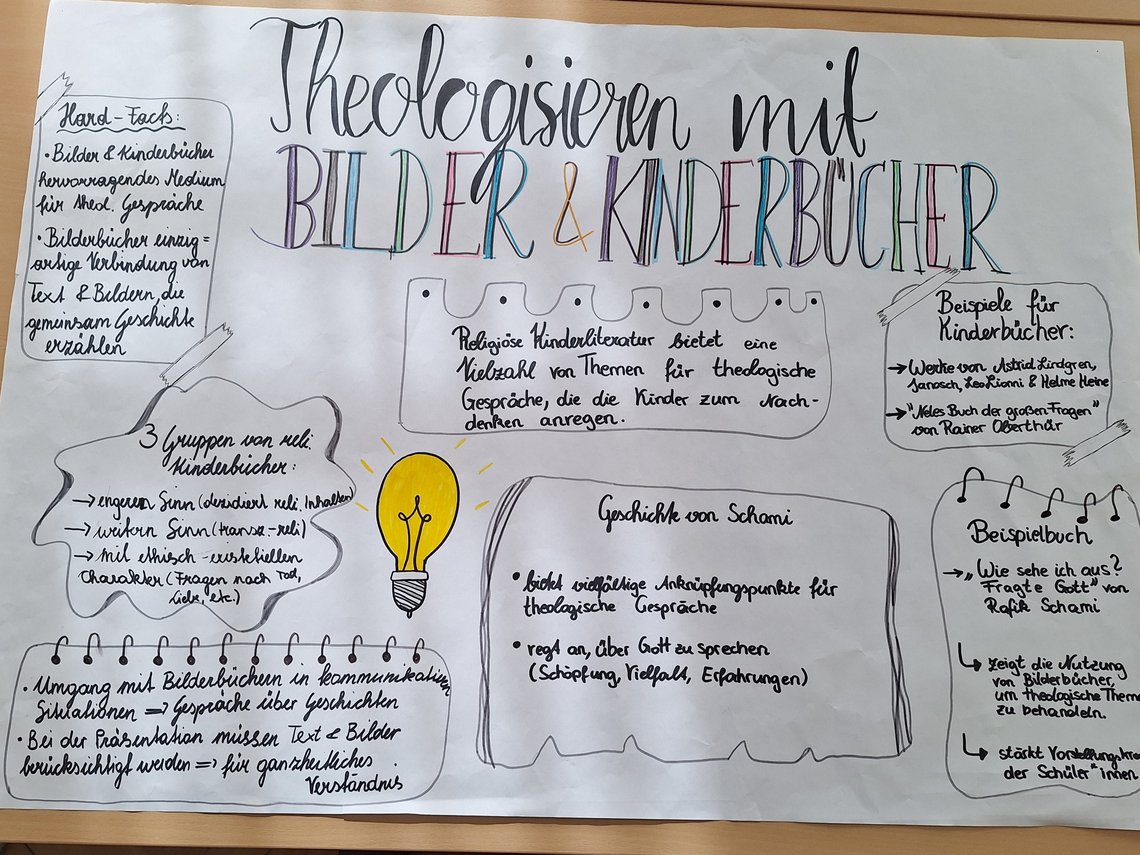 Theologisieren mit
BILDER & KINDERBÜCHER
Hard-Facts:
• Bilder & Kinderbücher
hervorragendes Medium
für theol. Gespräche
• Bilderbücher einzig=
artige Verbindung von
Text & Bildern, die
gemeinsam Geschichte
erzählen
Religiöse Kinderliteratur bietet eine
Vielzahl von Themen für theologische
Gespräche, die die Kinder zum Nach-
denken anregen.
Beispiele für
Kinderbücher:
→ Werke von Astrid Lindgren,
Janosch, Leo Lionni & Helme Heine
→ "Neles Buch der großen Fragen"
von Rainer Oberthür
3 Gruppen von reli.
Kinderbücher:
→ engeren Sinn (dezidiert reli. Inhalten)
→ weitern Sinn (transz.-reli)
→ mit ethisch-existentiellen
Charakter (Fragen nach Tod,
Liebe, etc.)
Geschichte von Schami
• bietet vielfältige Anknüpfungspunkte für
theologische Gespräche
• regt an, über Gott zu sprechen
(Schöpfung, Vielfalt, Erfahrungen)
Beispielbuch
→ „Wie sehe ich aus?
Fragte Gott" von
Rafik Schami
↳ zeigt die Nutzung
von Bilderbücher,
um theologische Theme
zu behandeln.
↳ stärkt Vorstellungskra
der Schüler*innen
• Umgang mit Bilderbüchern in kommunikativen
Situationen => Gespräche über Geschichten
• Bei der Präsentation müssen Text & Bilder
berücksichtigt werden => für ganzheitliches
Verständnis